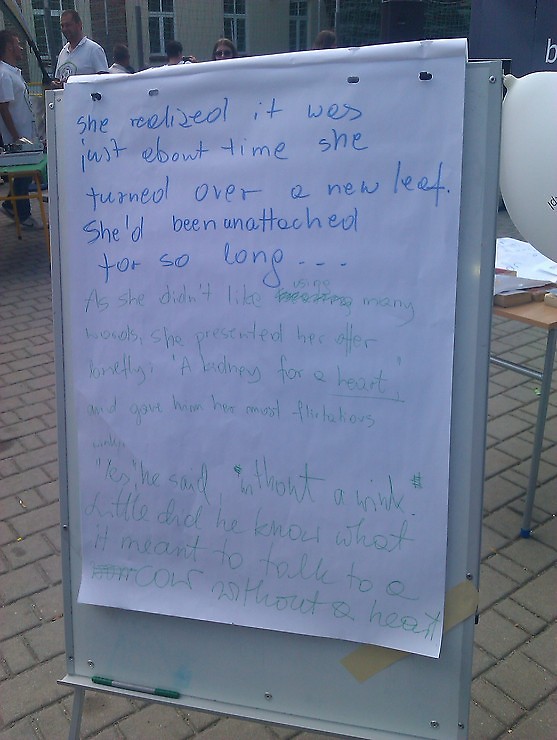 she realized it was
just about time she
turned over a new leaf.
She'd been unattached
for so long ---
As she didn't like using many
words, she presented her offer
briefly: 'A kidney for a heart'
and gave him her most flirtatious
wink.
"Yes," he said, "without a wink."
Little did he know what
it meant to talk to a
cow without a heart
b